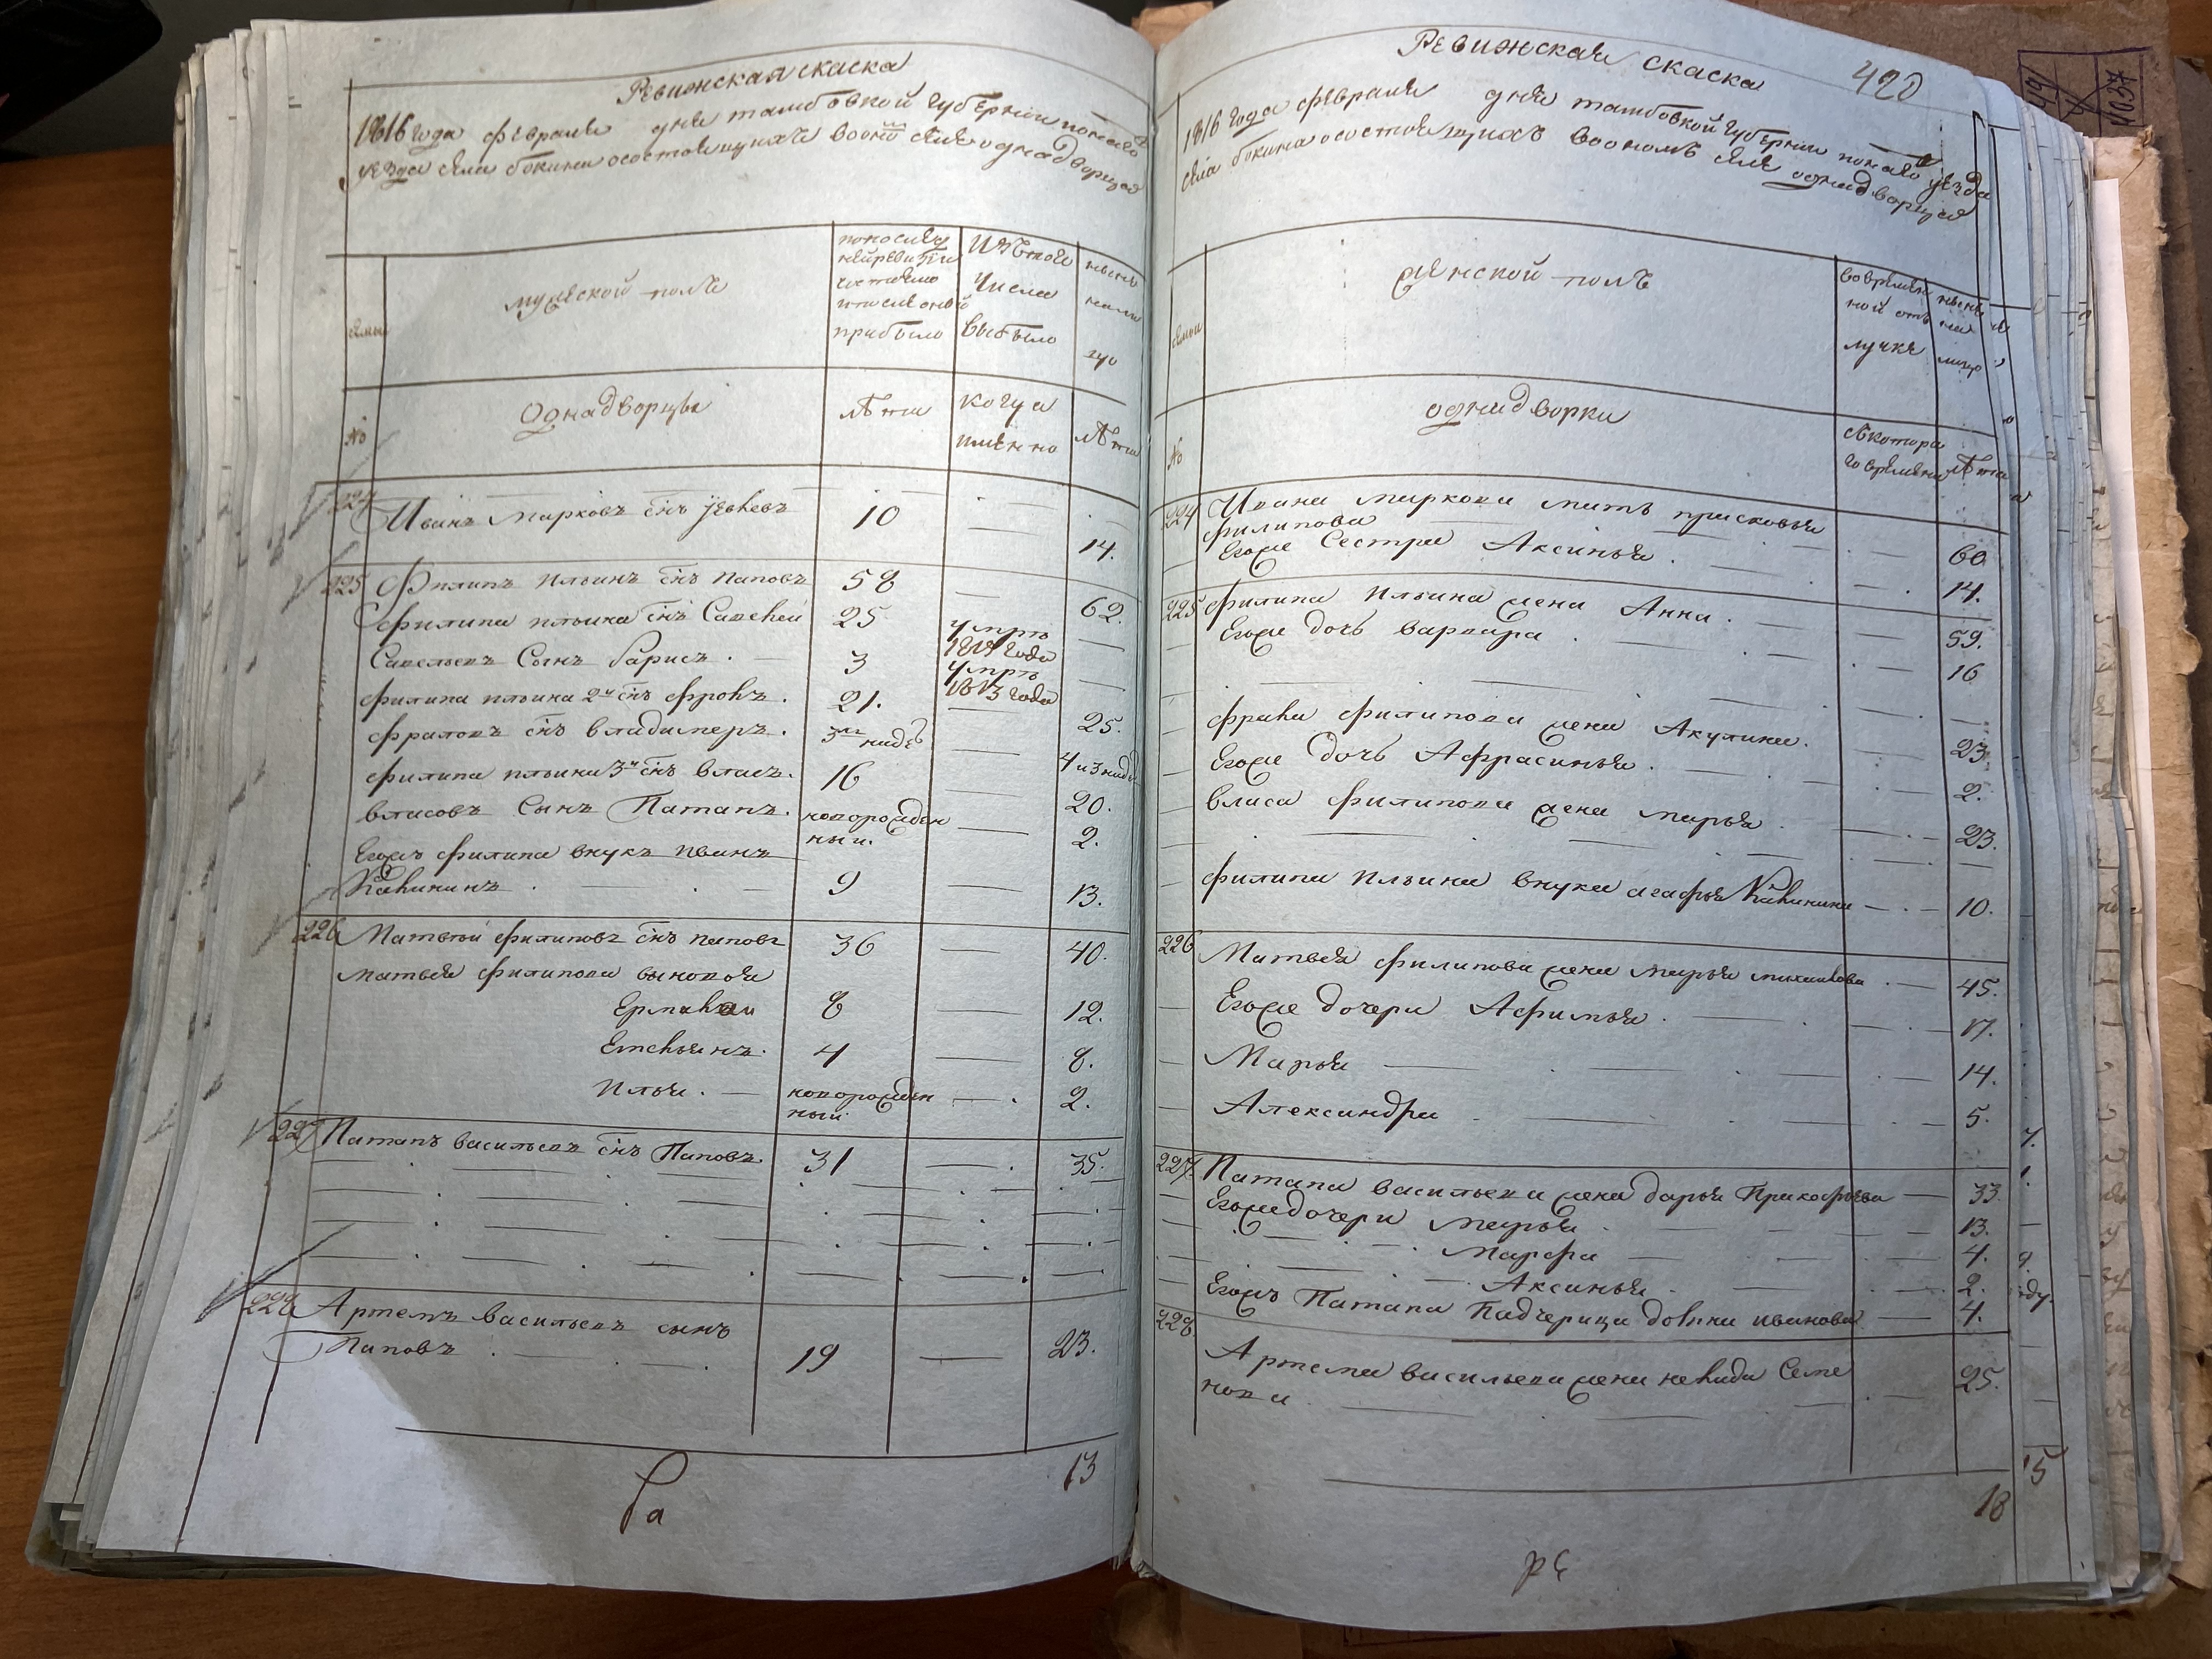 Ревижская скаска
1816 года февраля дня тамбовкой губернии
уезда села бокина осостоящихъ воономъ селе однадворцов
мужской полъ
прибыло
Изтого
числа
выбыло
№
Однадворцы
лѣта
когда
имянно
лѣта
224 Иванъ Марковъ снъ 10 — 14.
225 Филипъ Ильинъ снъ Паповъ 58 — 62.
Филипа ильина снъ Савелей 25 умръ —
1814 года
Савельевъ Сынъ барисъ. — 3 умръ —
1813 года
филипа ильина 2й снъ фролъ. 21. — 25.
фраловъ снъ владимеръ. 3 нидѣ — 4 и 3 нидѣ
филипа ильина 3й снъ власъ. 16 — 20.
власовъ Сынъ Патапъ. новорожден — 2.
ный.
Егожъ филипа внукъ иванъ
9 — 13.
226 Матвей филиповъ снъ паповъ 36 — 40.
матвея филипова сыновья
Ермалаи 8 — 12.
Емельянъ. 4 — 8.
Илья. — новорожден — 2.
ный.
227 Патапъ васильевъ снъ Паповъ. 31 — 35.
228 Артемъ васильевъ сынъ
Паповъ 19 — 23.
13
Ра
Ревижская скаска
420
1816 года февраля дня тамбовкой губернии уезда
села бокина осостоящихъ воономъ селе однадворцов
женской полъ
вовремен
ной отъ
лучке
№
однадворки
скотора
го времени
лѣта
224 Ивана маркова мать прасковья
филипова — 60
Егоже Сестра Аксинья. — 14.
225 филипа Ильина жена Анна. — 59.
Егоже дочь варвара — 16
фрала филипова жена Акулина. 23.
Егоже дочь Афрасинья. — 2.
власа филипова жена марья — 23.
филипа Ильина внука агафья — 10.
226 Матвея филипова жена марья михаилова — 45.
Егоже дочери Афимья. — 17.
Марья — 14.
Александра 5.
227 Патапа васильева жена дарья Пракофьева — 33.
Егоже дочери Марья — 13.
Марфа — 4.
Аксинья. — 2.
Егожъ Патапа Падчерица иванова — 4.
228
Артема васильева жена Семе
нова — 25.
18
15
ре
1037